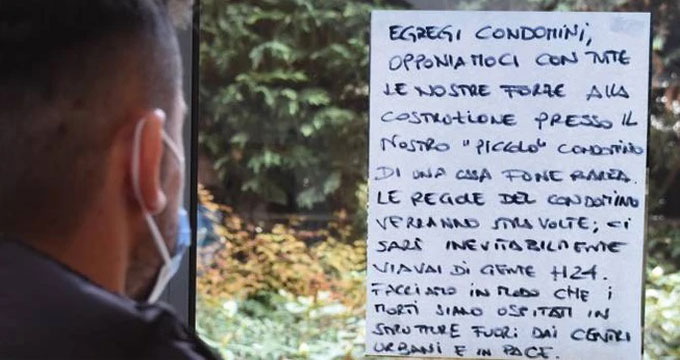 EGREGI CONDOMINI,
OPPONIAMOCI CON TUTTE
LE NOSTRE FORZE ALLA
COSTRUZIONE PRESSO IL
NOSTRO "PICCOLO" CONDOMINIO
DI UNA CASA FUNERARIA.
LE REGOLE DEL CONDOMINIO
VERRANNO STRAVOLTE; CI
SARÀ INEVITABILMENTE
VIAVAI DI GENTE H24.
FACCIAMO IN MODO CHE I
MORTI SIANO OSPITATI IN
STRUTTURE FUORI DAI CENTRI
URBANI E IN PACE.